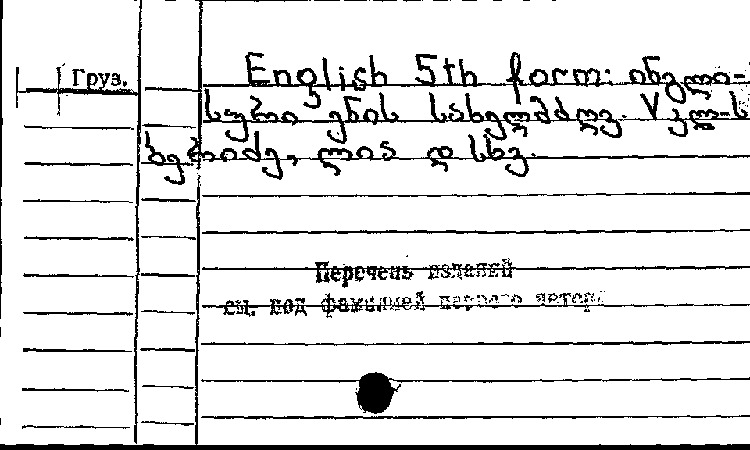 Груз.
English 5th form: ინგლი-
სური ენის სახელმძღვ. V კლ-ს
ბერიძე, ლია და სხვ.
Перечень изданий
см. под фамилией первого автора